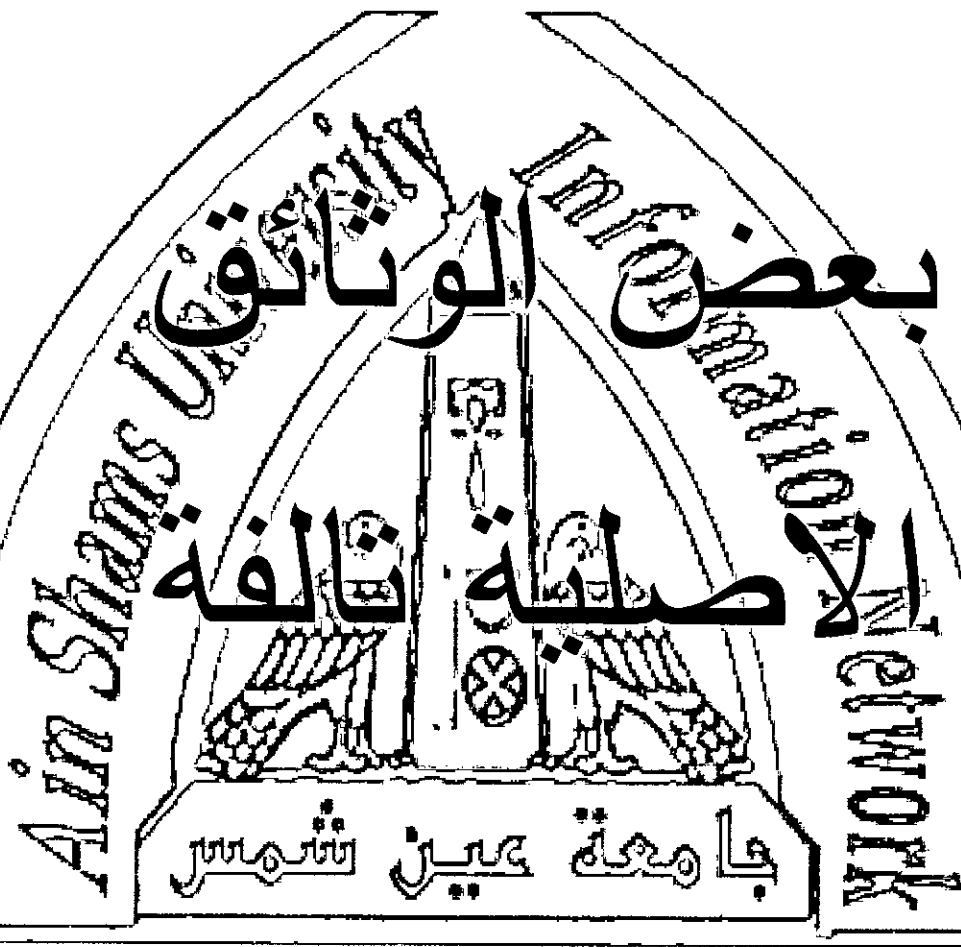 Ain Shams University Information Network
بعض الوثائق
الاصلية تالفة
جامعة عين شمس